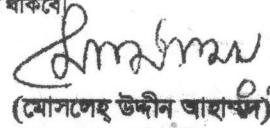 থাকবে।
(মোসলেহ্ উদ্দীন আহাম্মদ)